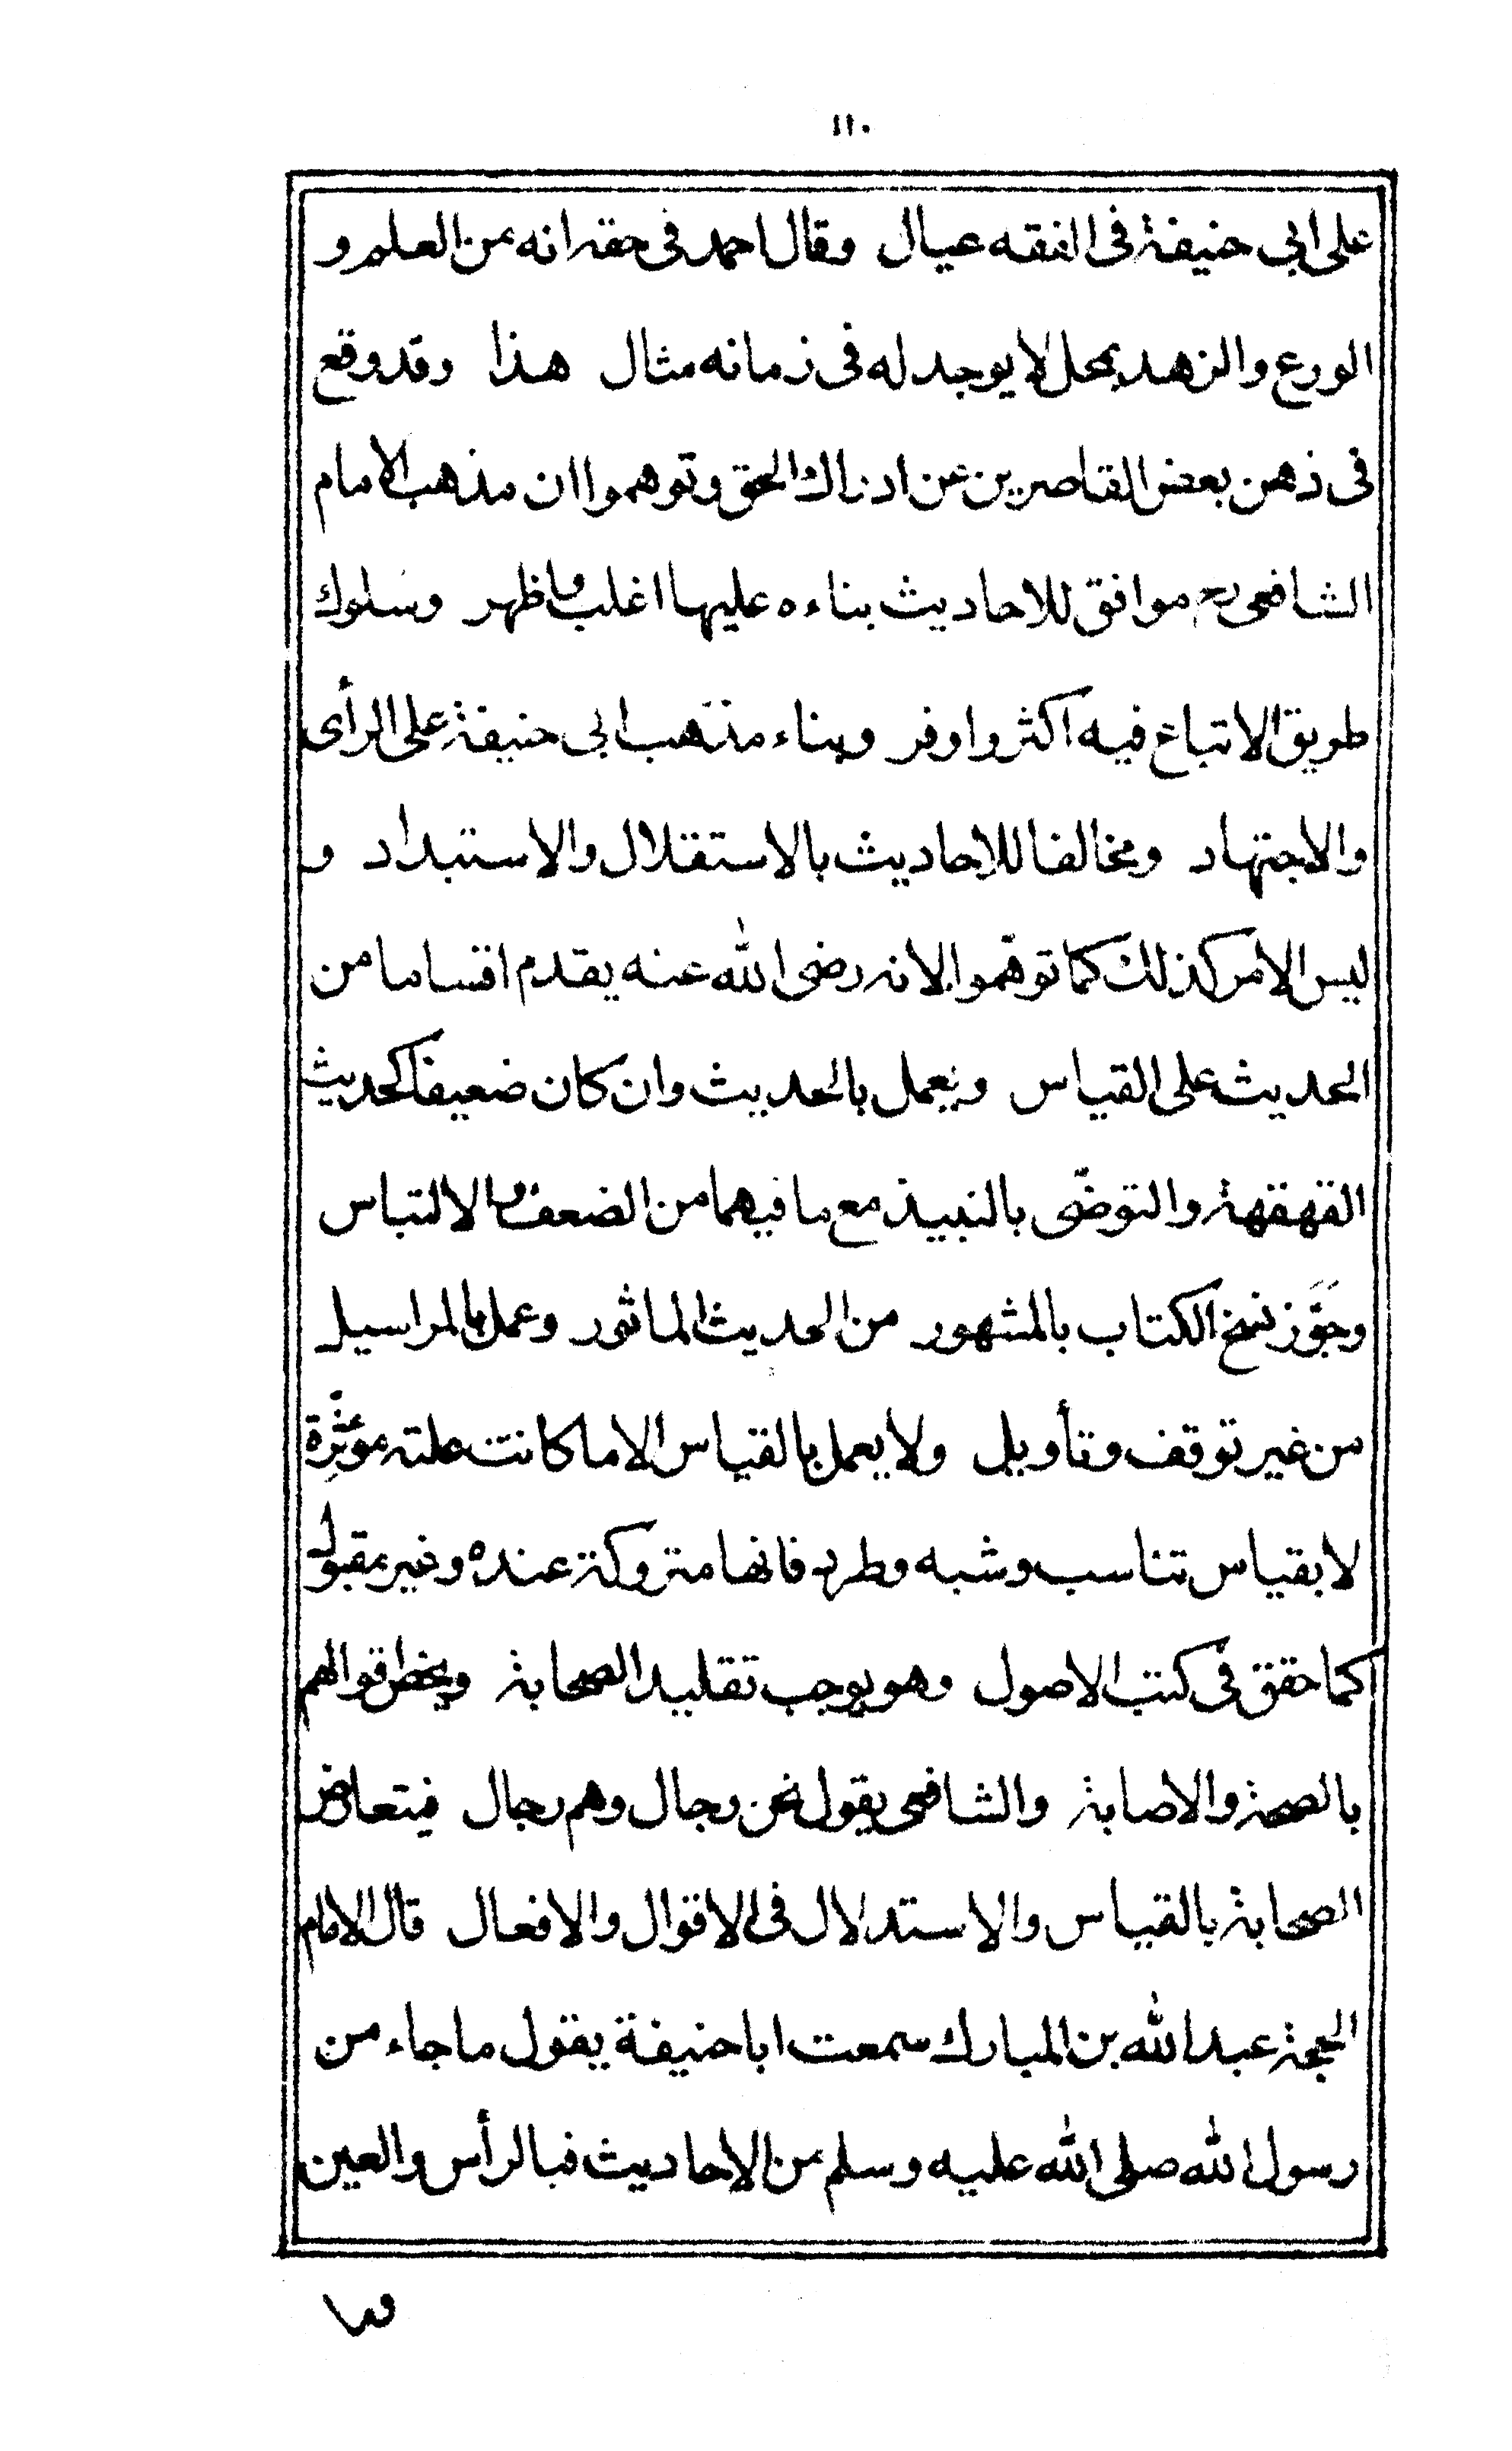 ١١٠
على ابى حنيفة فى الفقه عيال وقال احمد فى حقه انه من العلم و
الورع والزهد بمحل لا يوجد له فى زمانه مثال هذا وقد وقع
فى ذهن بعض القاصرين عن ادراك الحق وتوهموا ان مذهب الامام
الشافعى رح موافق للاحاديث بناءه عليها اغلب واظهر وسلوك
طريق الاتباع فيه اكثر واوفر وبناء مذهب ابى حنيفة على الرأى
والاجتهاد ومخالفا للاحاديث بالاستقلال والاستبداد و
ليس الامر كذلك كما توهّموا لانه رضى الله عنه يقدم اقساما من
الحديث على القياس ويعمل بالحديث وان كان ضعيفا كحديث
القهقهة والتوضّى بالنبيذ مع ما فيهما من الضعف والالتباس
وجَوَّز نسخ الكتاب بالمشهور من الحديث الماثور وعمل بالمراسيل
من غير توقف وتأويل ولا يعمل بالقياس الا ما كانت علته مؤثّرة
لا بقياس تناسب وشبه وطرد فانها متروكة عنده وغير مقبول
كما حقق فى كتب الاصول وهو يوجب تقليد الصحابة ويخص اقوالهم
بالصحة والاصابة والشافعى يقول نحن رجال وهم رجال فيتعارض
الصحابة بالقياس والاستدلال فى الاقوال والافعال قال الامام
الحجة عبد الله بن المبارك سمعت ابا حنيفة يقول ما جاء من
رسول الله صلى الله عليه وسلم من الاحاديث فبالرأس والعين
وما